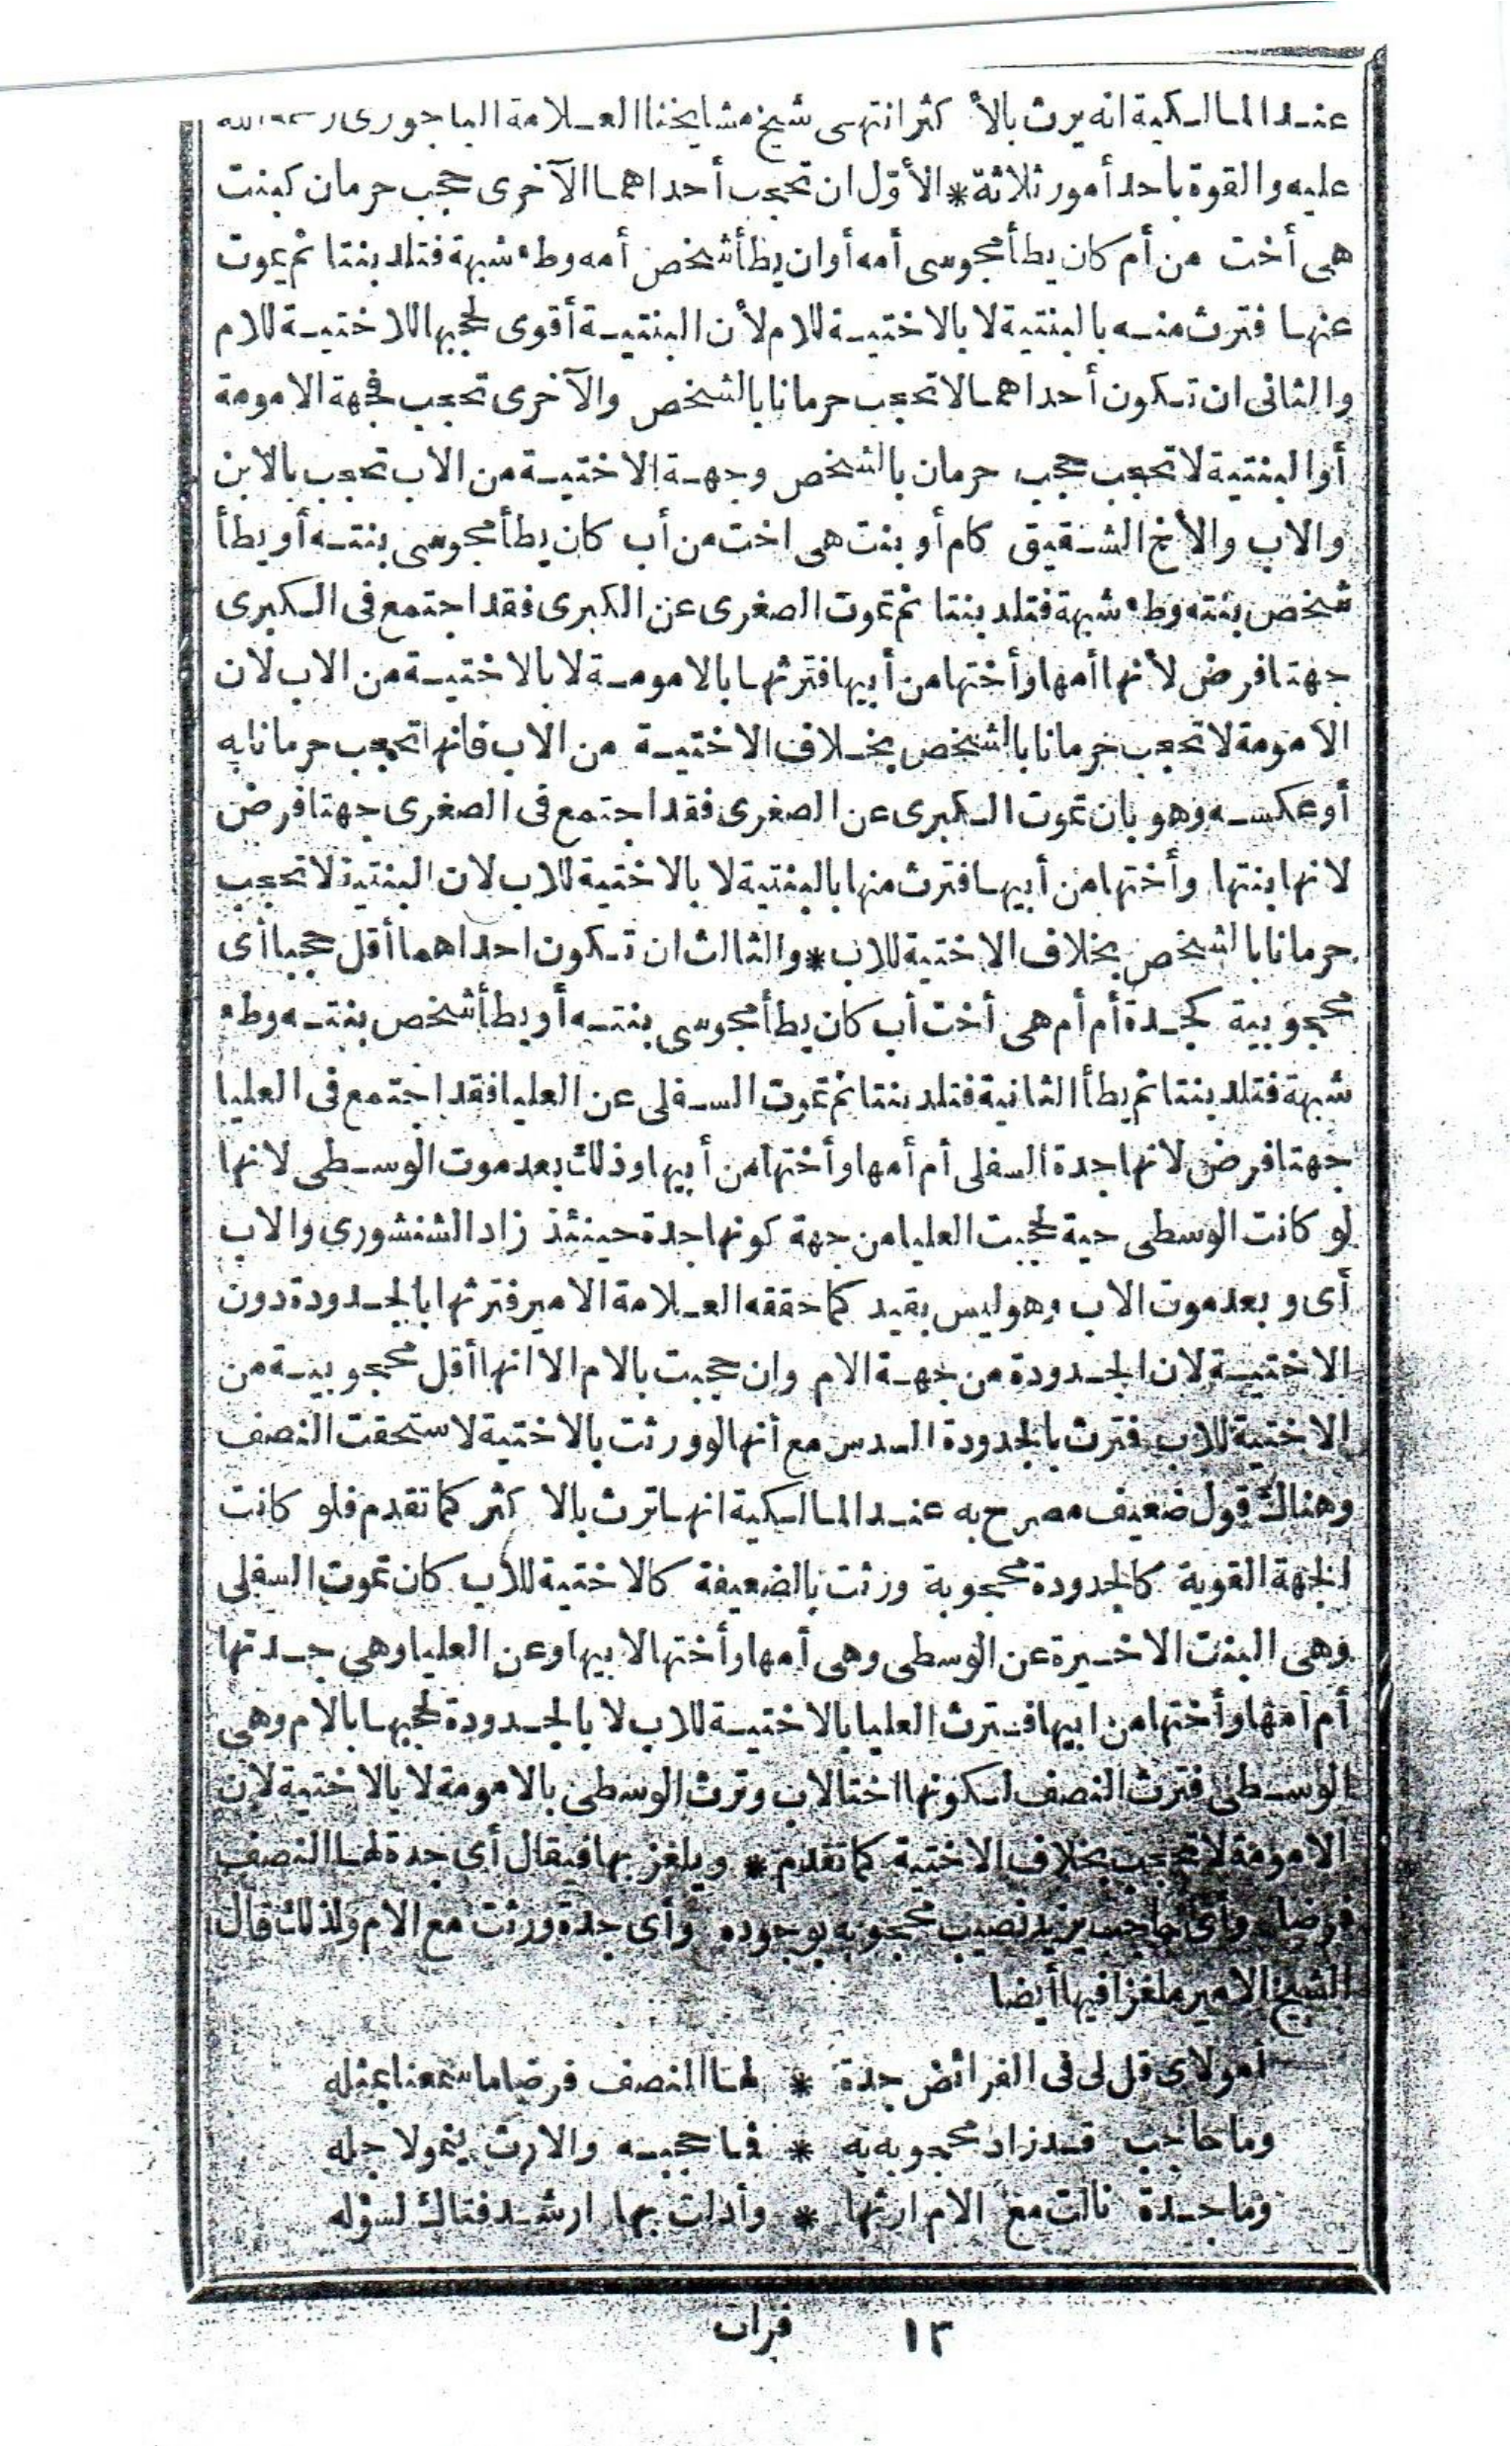 عند المالكية انه يرث بالأكثر انتهى شيخ مشايخنا العلامة الباجورى رحمه الله
عليه والقوة باحد أمور ثلاثة * الأول ان تحجب أحداهما الآخرى حجب حرمان كبنت
هى أخت من أم كان يطأ مجوسى أمه أوان يطأ شخص أمه وطء شبهة فتلد بنتا ثم يموت
عنها فترث منه بالبنتية لا بالاختية للام لأن البنتية أقوى لحجبها للاختية للام
والثانى ان تكون أحداهما لا تحجب حرمانا بالشخص والآخرى تحجب فجهة الامومة
أو البنتية لا تحجب حجب حرمان بالشخص وجهة الاختية من الاب تحجب بالابن
والاب والأخ الشقيق كام أو بنت هى اخت من أب كان يطأ مجوسى بنته أو يطأ
شخص بنته وطء شبهة فتلد بنتا ثم تموت الصغرى عن الكبرى فقد اجتمع فى الكبرى
جهتا فرض لأنها أمها وأختها من أبيها فترثها بالامومة لا بالاختية من الاب لان
الامومة لا تحجب حرمانا بالشخص بخلاف الاختية من الاب فانها تحجب حرمانا به
أو عكسه وهو بان تموت الكبرى عن الصغرى فقد اجتمع فى الصغرى جهتا فرض
لانها بنتها وأختها من أبيها فترث منها بالبنتية لا بالاختية للاب لان البنتية لا تحجب
حرمانا بالشخص بخلاف الاختية للاب * والثالث ان تكون احداهما أقل حجبا أى
محجوبية كجدة أم أم هى أخت أب كان يطأ مجوسى بنته أو يطأ شخص بنته وطء
شبهة فتلد بنتا ثم يطأ الثانية فتلد بنتا ثم تموت السفلى عن العليا فقد اجتمع فى العليا
جهتا فرض لانها جدة السفلى أم أمها وأختها من أبيها وذلك بعد موت الوسطى لانها
لو كانت الوسطى حية لحجبت العليا من جهة كونها جدة حينئذ زاد الشنشورى والاب
أى وبعد موت الاب وهو ليس بقيد كما حققه العلامة الامير فترثها بالجدودة دون
الاختية لان الجدودة من جهة الام وان حجبت بالام الا انها أقل محجوبية من
الاختية للاب فترث بالجدودة السدس مع أنها لو ورثت بالاختية لاستحقت النصف
وهناك قول ضعيف مصرح به عند المالكية انها ترث بالاكثر كما تقدم فلو كانت
الجهة القوية كالجدودة محجوبة ورثت بالضعيفة كالاختية للاب كان تموت السفلى
وهى البنت الاخيرة عن الوسطى وهى أمها وأختها لابيها وعن العليا وهى جدتها
أم أمها وأختها من ابيها فترث العليا بالاختية للاب لا بالجدودة لحجبها بالام وهى
الوسطى فترث النصف لكونها اختا لاب وترث الوسطى بالامومة لا بالاختية لان
الامومة لا تحجب بخلاف الاختية كما تقدم * ويلغز بها فيقال أى جدة لها النصف
فرضا وأى حاجب يزيد نصيب محجوبه بوجوده وأى جدة ورثت مع الام ولذلك قال
الشيخ الامير ملغزا فيها أيضا
أمولاى قل لى فى الفرائض جدة * لها النصف فرضا ما سمعنا بمثله
وما حاجب قد زاد محجوبه به * فما حجبه والارث ينمو لاجله
وما جدة نالت مع الام ارثها * وأدلت بها ارشد فتاك لسؤله
١٣ فرات